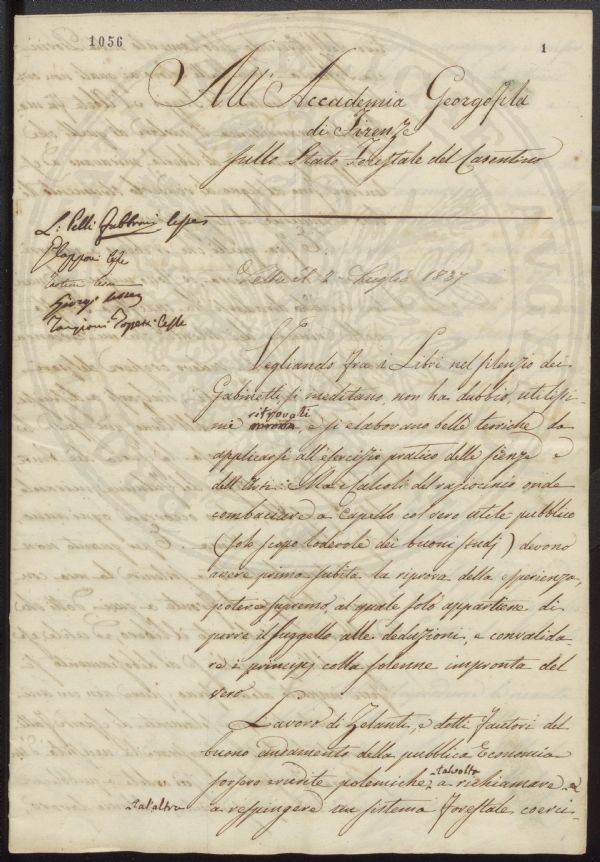 1056
1
All' Accademia Georgofila
di Firenze
sullo Stato Forestale del Casentino
L: Pelli Fabbroni
Letta il 2 Luglio 1837
Vegliando fra i Libri nel silenzio dei
Gabinetti si meditano, non ha dubbio, utilissi
mi ritrovati, e si elaborano belle teoriche da
applicarsi all'esercizio pratico delle scienze e
dell'Arti: Ma i calcoli del raziocinio onde
combaciare a Capello col vero utile pubblico
(solo scopo lodevole dei buoni studj) devono
avere prima subita la riprova della esperienza,
potere supremo, al quale solo appartiene di
porre il suggello alle deduzioni, e convalida-
re i principj colla solenne impronta del
vero.
Lavoro di Zelanti, e dotti Fautori del
buono andamento della pubblica Economia
forsero erudite polemiche, talvolta a richiamare, e
talaltra a respingere un sistema Forestale coerci-